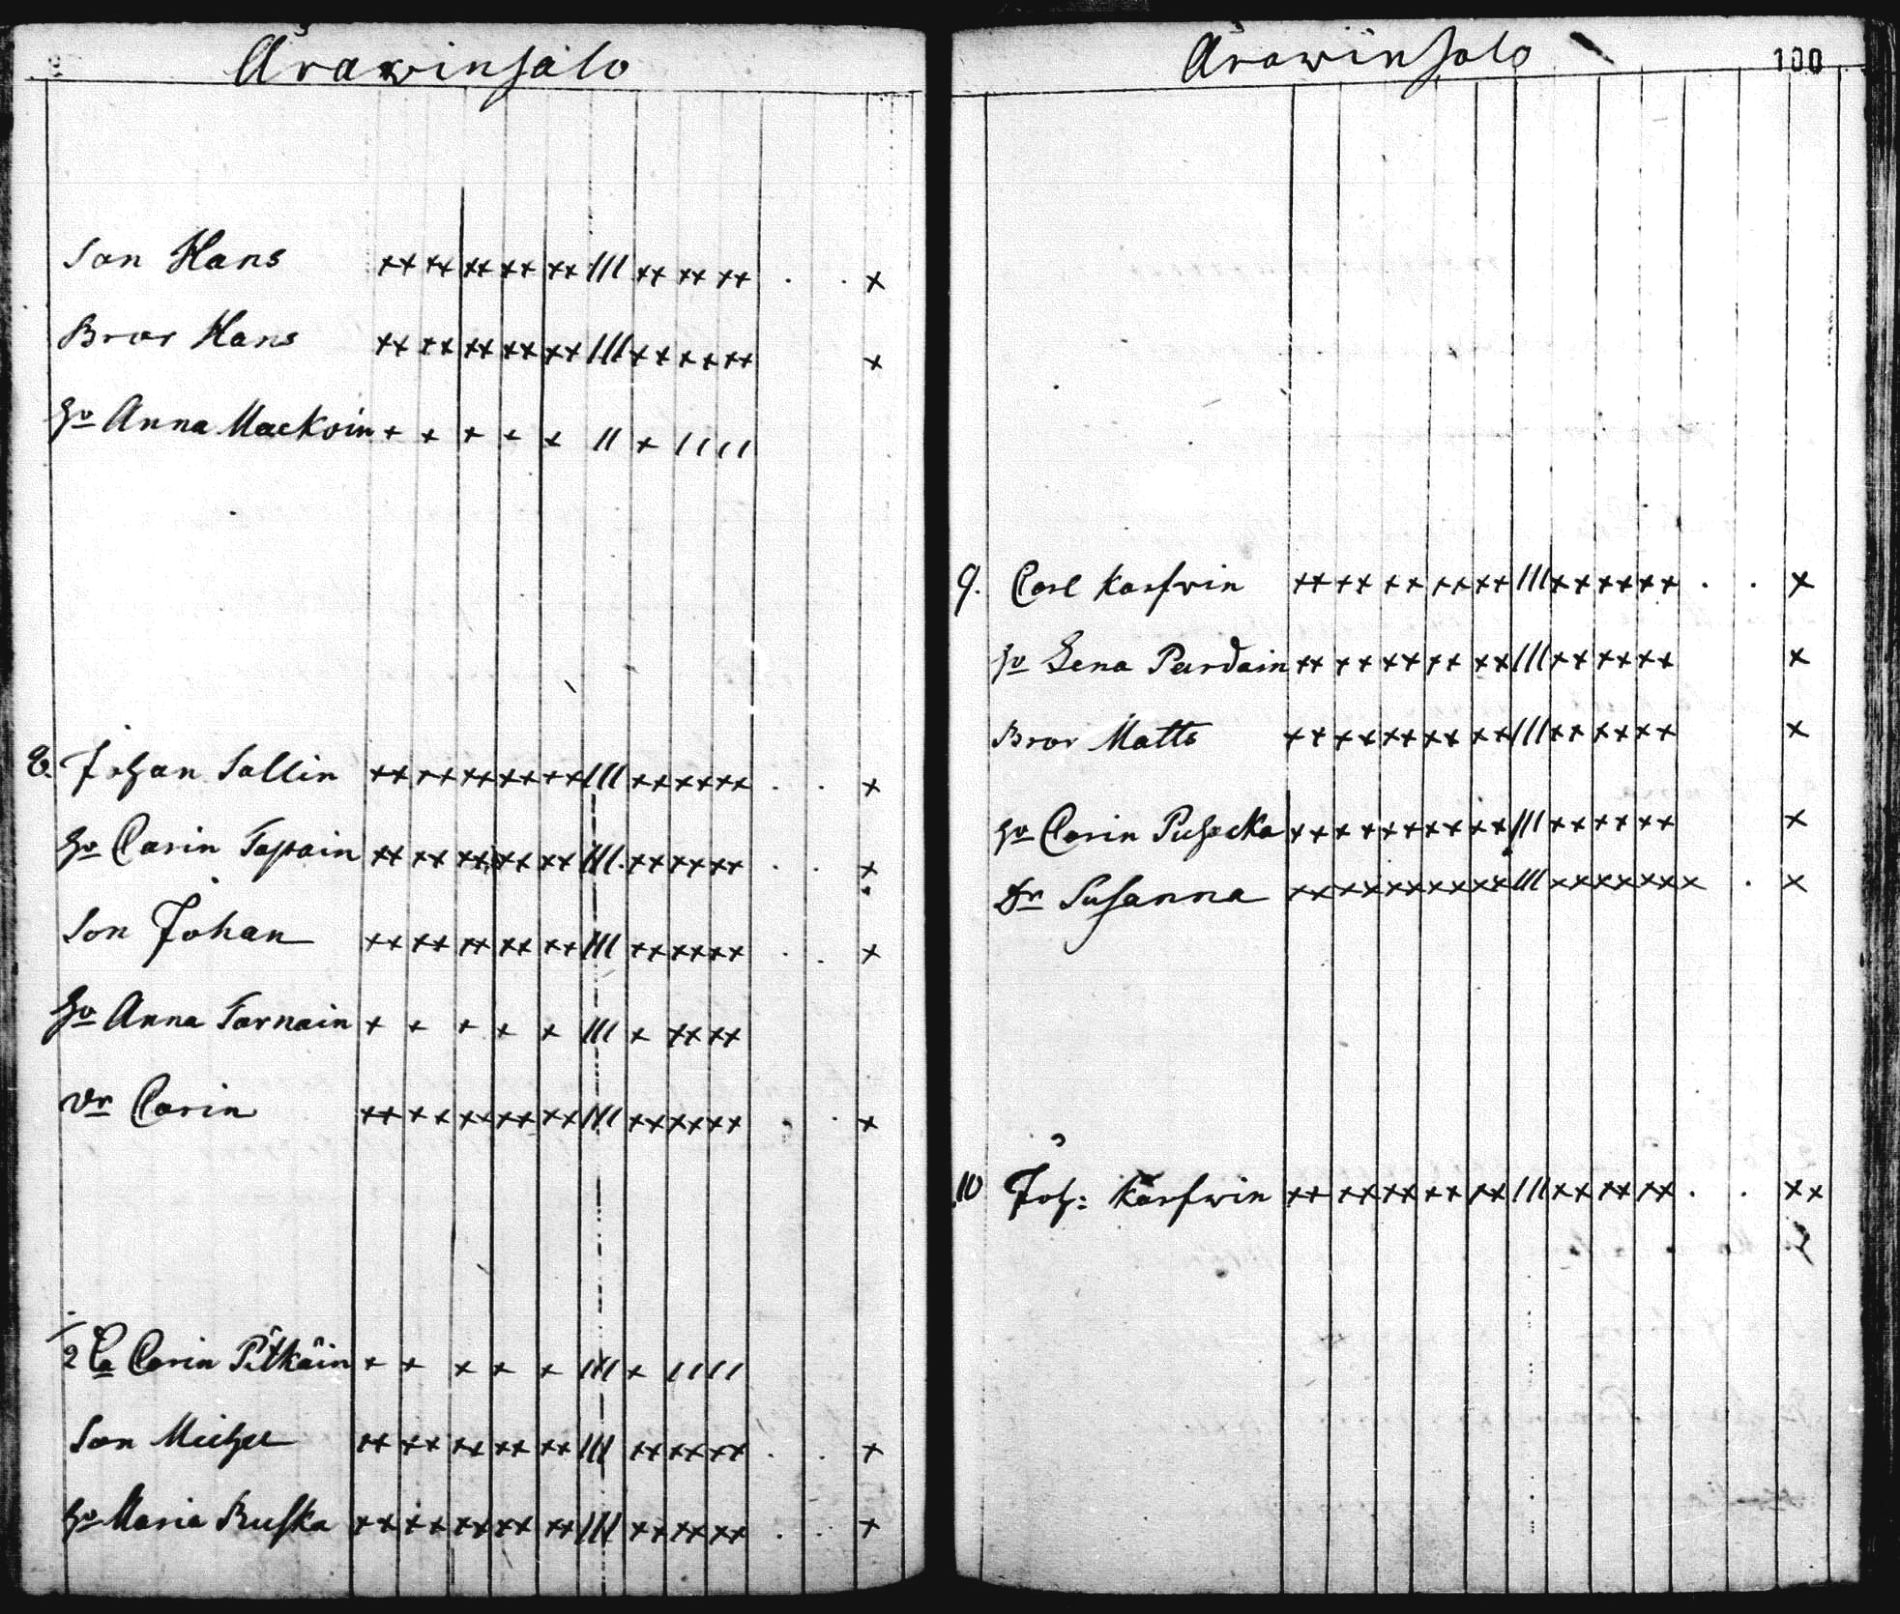 Arawinsalo
Son Hans ×× ×× ×× ×× ×× /// ×× ×× ×× . . ×
Bror Hans ×× ×× ×× ×× ×× /// ×× ×× ×× ×
hu Anna Mackoin × × × × × // × / / / /
8. Johan Sallin ×× ×× ×× ×× ×× /// ×× ×× ×× . . ×
hu Carin Tapain ×× ×× ×× ×× ×× /// ×× ×× ×× . . ×
Son Johan ×× ×× ×× ×× ×× /// ×× ×× ×× . . ×
hu Anna Tarnain × × × × × /// × ×× ××
Dr Carin ×× ×× ×× ×× ×× /// ×× ×× ×× . . ×
Carin Pitkäin × × × × × /// × / / / /
Son Michel ×× ×× ×× ×× ×× /// ×× ×× ×× . . ×
hu Maria Ruska ×× ×× ×× ×× ×× /// ×× ×× ×× . . ×
Arawinsalo 100
9. Carl Karfwin ×× ×× ×× ×× ×× /// ×× ×× ×× . . ×
hu Lena Pardain ×× ×× ×× ×× ×× /// ×× ×× ×× ×
Bror Matts ×× ×× ×× ×× ×× /// ×× ×× ×× ×
hu Carin ×× ×× ×× ×× ×× /// ×× ×× ×× ×
Dr Susanna ×× ×× ×× ×× ×× /// ×× ×× ×× × . ×
10 Joh: Karfwin ×× ×× ×× ×× ×× /// ×× ×× ×× . . ××